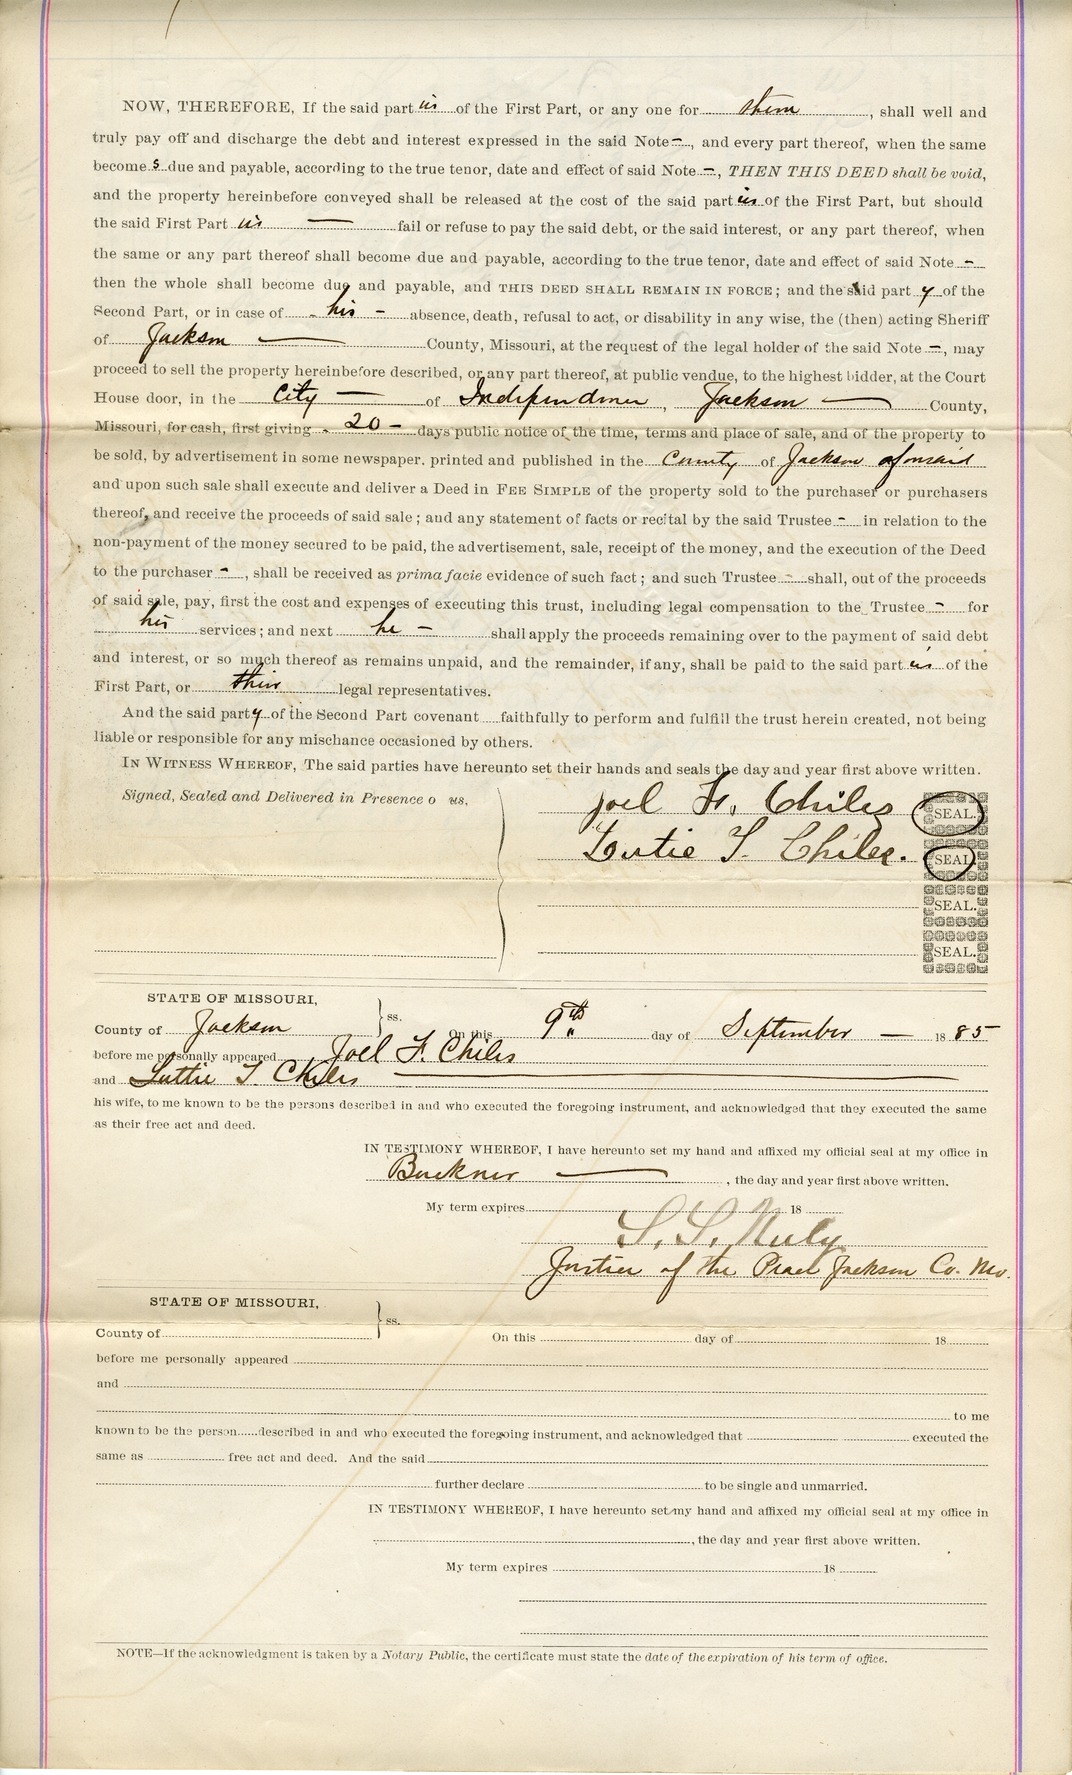 NOW, THEREFORE, If the said part ies of the First Part, or any one for them, shall well and
truly pay off and discharge the debt and interest expressed in the said Note –, and every part thereof, when the same
become s due and payable, according to the true tenor, date and effect of said Note –, THEN THIS DEED shall be void,
and the property hereinbefore conveyed shall be released at the cost of the said part ies of the First Part, but should
the said First Part ies — fail or refuse to pay the said debt, or the said interest, or any part thereof, when
the same or any part thereof shall become due and payable, according to the true tenor, date and effect of said Note –
then the whole shall become due and payable, and THIS DEED SHALL REMAIN IN FORCE; and the said part y of the
Second Part, or in case of – his – absence, death, refusal to act, or disability in any wise, the (then) acting Sheriff
of Jackson — County, Missouri, at the request of the legal holder of the said Note –, may
proceed to sell the property hereinbefore described, or any part thereof, at public vendue, to the highest bidder, at the Court
House door, in the City — of Independence, Jackson — County,
Missouri, for cash, first giving – 20 – days public notice of the time, terms and place of sale, and of the property to
be sold, by advertisement in some newspaper. printed and published in the County of Jackson aforesaid
and upon such sale shall execute and deliver a Deed in FEE SIMPLE of the property sold to the purchaser or purchasers
thereof, and receive the proceeds of said sale; and any statement of facts or recital by the said Trustee – in relation to the
non-payment of the money secured to be paid, the advertisement, sale, receipt of the money, and the execution of the Deed
to the purchaser –, shall be received as prima facie evidence of such fact; and such Trustee – shall, out of the proceeds
of said sale, pay, first the cost and expenses of executing this trust, including legal compensation to the Trustee – for
his services; and next he – shall apply the proceeds remaining over to the payment of said debt
and interest, or so much thereof as remains unpaid, and the remainder, if any, shall be paid to the said part ies of the
First Part, or their legal representatives.
And the said party of the Second Part covenant faithfully to perform and fulfill the trust herein created, not being
liable or responsible for any mischance occasioned by others.
IN WITNESS WHEREOF, The said parties have hereunto set their hands and seals the day and year first above written.
Signed, Sealed and Delivered in Presence o us.
Joel F. Chiles SEAL.
Lutie T. Chiles. SEAL.
SEAL.
SEAL.
STATE OF MISSOURI,
County of Jackson ss. On this 9th day of September — 1885
before me personally appeared Joel F. Chiles
and Luttie T. Chiles
his wife, to me known to be the persons described in and who executed the foregoing instrument, and acknowledged that they executed the same
as their free act and deed.
IN TESTIMONY WHEREOF, I have hereunto set my hand and affixed my official seal at my office in
Buckner —, the day and year first above written.
My term expires 18
S. S. Neely
Justice of the Peace Jackson Co. Mo.
STATE OF MISSOURI,
County of ss. On this day of 18
before me personally appeared
and
to me
known to be the person described in and who executed the foregoing instrument, and acknowledged that executed the
same as free act and deed. And the said
further declare to be single and unmarried.
IN TESTIMONY WHEREOF, I have hereunto set my hand and affixed my official seal at my office in
, the day and year first above written.
My term expires 18
NOTE—If the acknowledgment is taken by a Notary Public, the certificate must state the date of the expiration of his term of office.